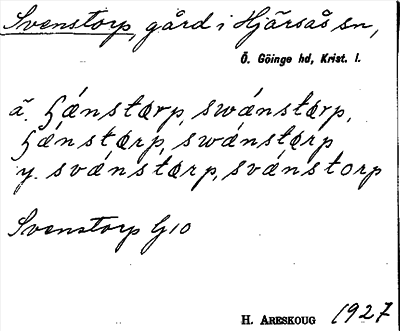 Svenstorp, gård i Hjärsås sn,
Ö. Göinge hd, Krist. l.
ä. hánstærp, swánstærp,
swánstærp
y. svánstærp, svánstorp
Svenstorp G10
H. ARESKOUG 1927